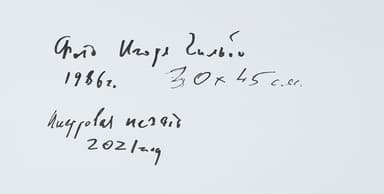 Фото Игоря Гильбо
1986г. 30 х 45 с.м.
Цифровая печать
2021год